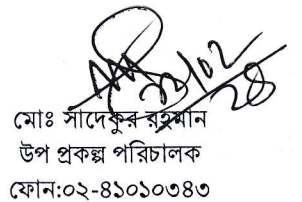 মোঃ সাদেকুর রহমান
উপ প্রকল্প পরিচালক
ফোন:০২-৪১০১০৩৪৩